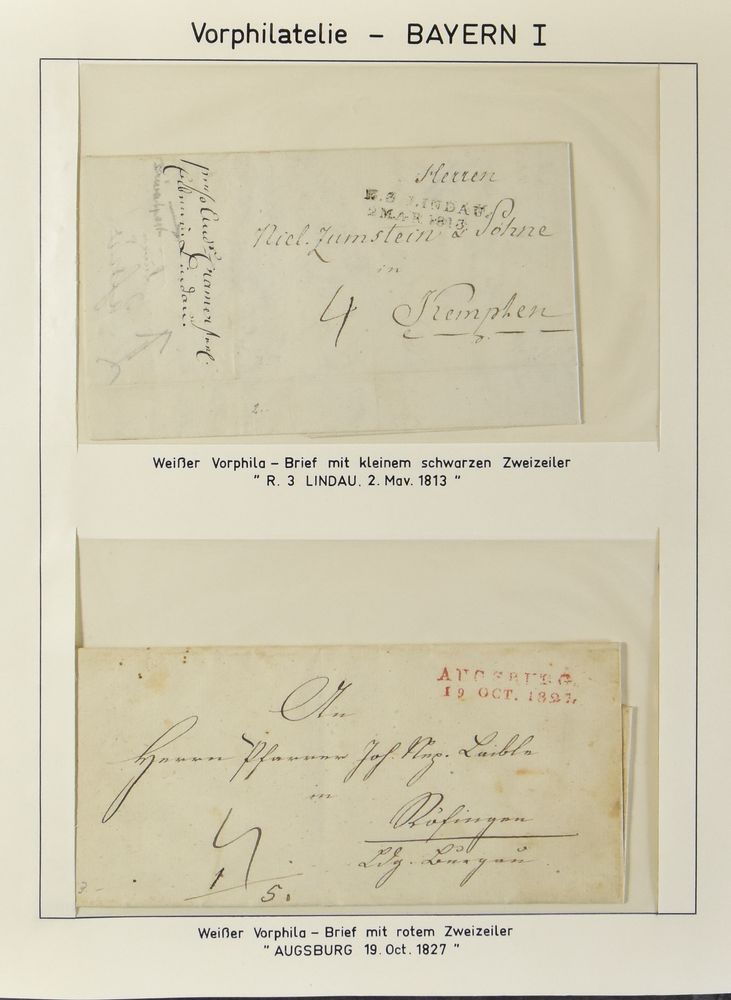 Vorphilatelie – BAYERN I
Herren
R.3 LINDAU.
2 MAR 1813
Nicl. Zumstein & Söhne
in
4
Kempten
2..
Weißer Vorphila – Brief mit kleinem schwarzen Zweizeiler
" R. 3 LINDAU. 2. Mav. 1813 "
AUGSBURG.
19 OCT. 1827.
An
Herrn Pfarrer Joh. Nep. Laible
in
Röfingen
Ldg. Burgau
1
5.
3 –
Weißer Vorphila – Brief mit rotem Zweizeiler
" AUGSBURG 19. Oct. 1827 "